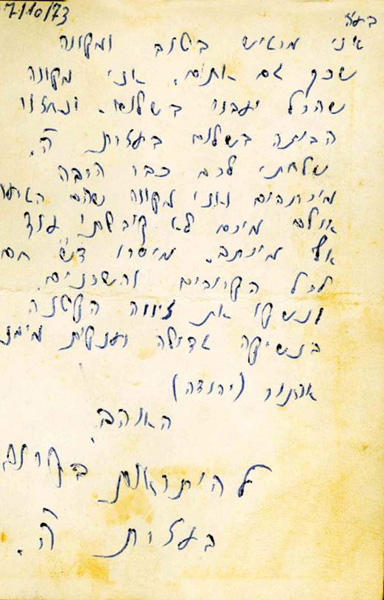 7/10/73
בע"ה
אני מרגיש בטוב ומקווה
שכך גם אתם. אני מקווה
שהכל יעבור בשלום. ונחזור
הביתה בשלום בעזרת ה'.
שלחתי לכם כבר הרבה
מיכתבים ואני מקווה שהם
אולם מכם לא קיבלתי עוד
אף מיכתב. מיסרו ד"ש חם
לכל הקרובים והשכנים
ונשקו את זיווה הקטנה
בנשיקה גדולה וענקית ממני
(יהודה)
האוהב
להיתראות בקרוב
בעזרת ה'.